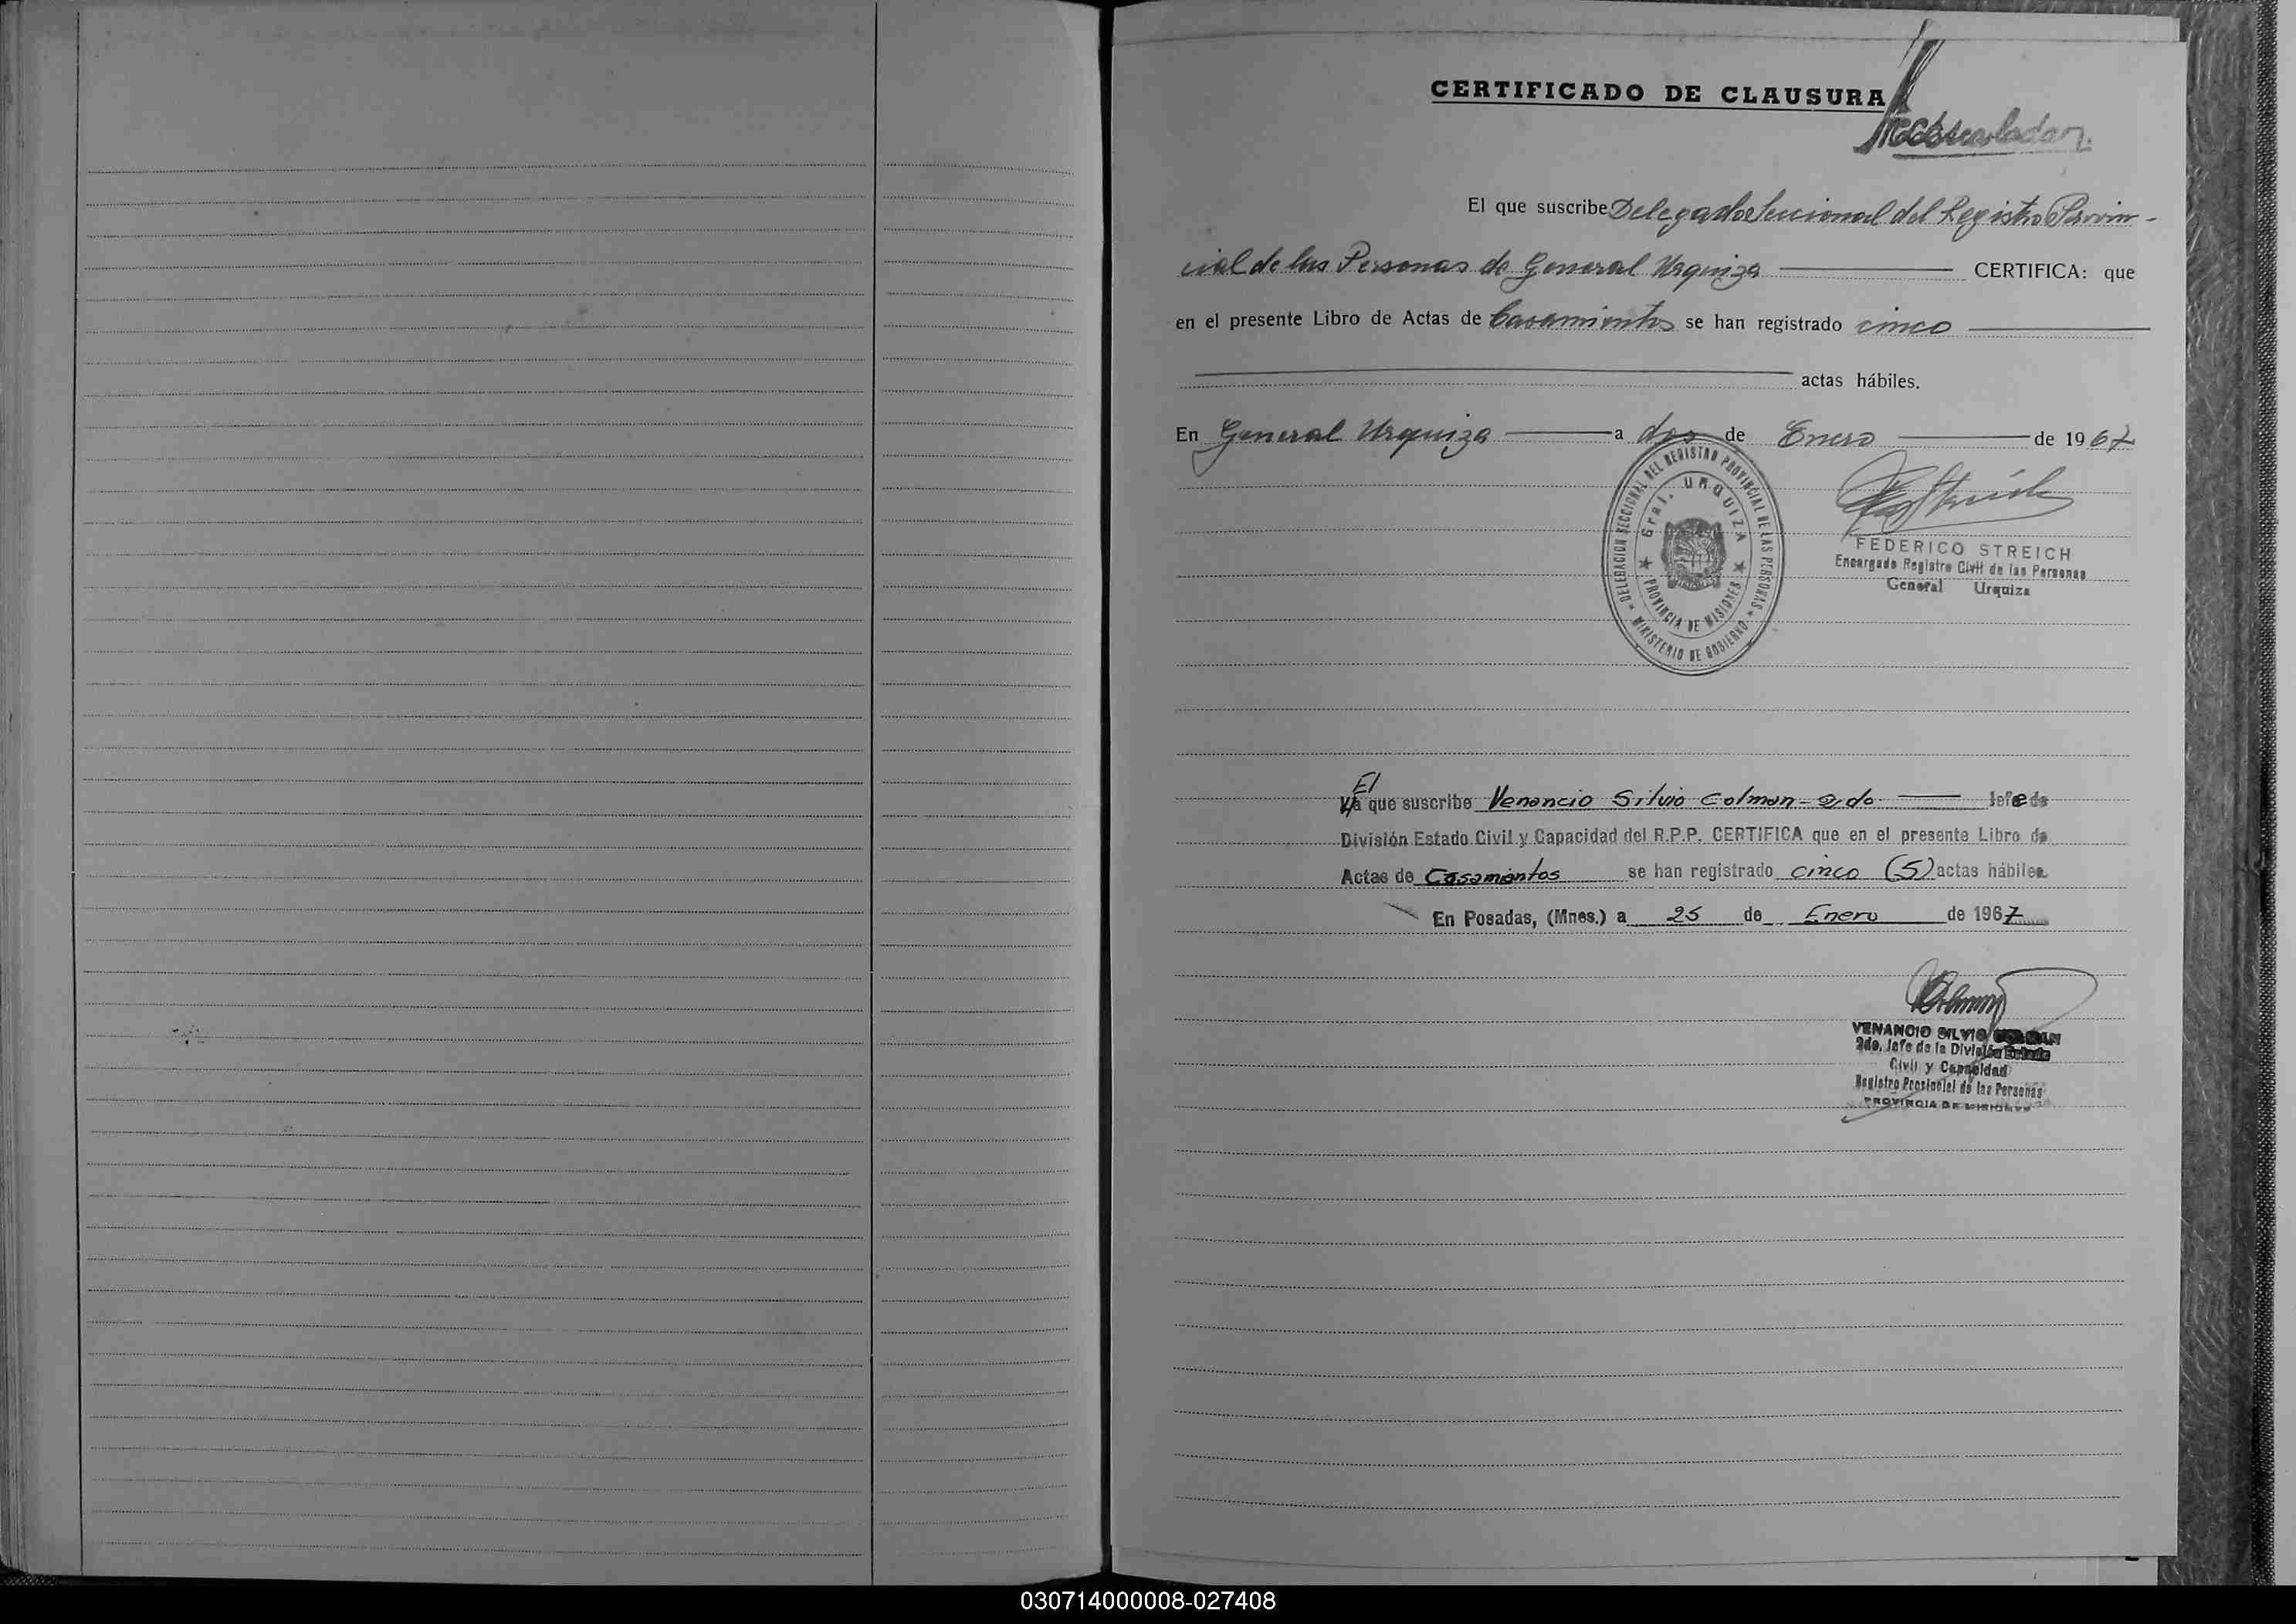 CERTIFICADO DE CLAUSURA
El que suscribe Delegado Seccional del Registro Provin-
cial de las Personas de General Urquiza CERTIFICA: que
en el presente Libro de Actas de Casamientos se han registrado cinco
actas hábiles.
En General Urquiza a dos de Enero de 1967
DELEGACION SECCIONAL DEL REGISTRO PROVINCIAL DE LAS PERSONAS
Gral. URQUIZA
PROVINCIA DE MISIONES
MINISTERIO DE GOBIERNO
FEDERICO STREICH
Encargado Registro Civil de las Personas
General Urquiza
El
que suscribe Venancio Silvio Colman - 2do. Jefe de
División Estado Civil y Capacidad del R.P.P. CERTIFICA que en el presente Libro de
Actas de Casamientos se han registrado cinco (5) actas hábiles
En Posadas, (Mnes.) a 25 de Enero de 1967
VENANCIO SILVIO COLMAN
2do. Jefe de la División Estado
Civil y Capacidad
Registro Provincial de las Personas
PROVINCIA DE MISIONES
030714000008-027408